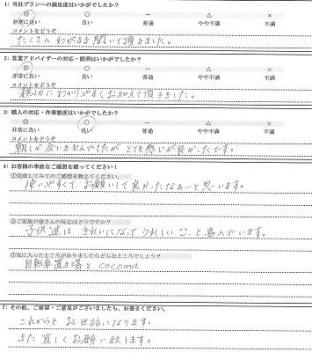 1）当社プランへの満足度はいかがでしたか？
◎ ○ － △ ×
非常に良い 良い 普通 やや不満 不満
コメントをどうぞ
たくさん わがままを聞いて頂きました。
2）営業アドバイザーの対応・説明はいかがでしたか？
◎ ○ － △ ×
非常に良い 良い 普通 やや不満 不満
コメントをどうぞ
親切に わかりやすく お話して頂きました。
3）職人の対応・作業態度はいかがでしたか？
◎ ○ － △ ×
非常に良い 良い 普通 やや不満 不満
コメントをどうぞ
とても感じが良かったです。
4）お客様の率直なご感想を教えてください！
①完成してみてのご感想を教えてください。
使いやすくて お願いして良かったなぁーと思います。
②ご家族の皆さんの反応はどうですか？
子供達は きれいになって うれしい と喜んでいます。
③気に入ったところがありましたらどんなところでしょう？
自転車置き場と cocoma
5）その他、ご要望・ご意見がございましたら、お書きください。
これからも お世話になります。
また 宜しくお願い致します。